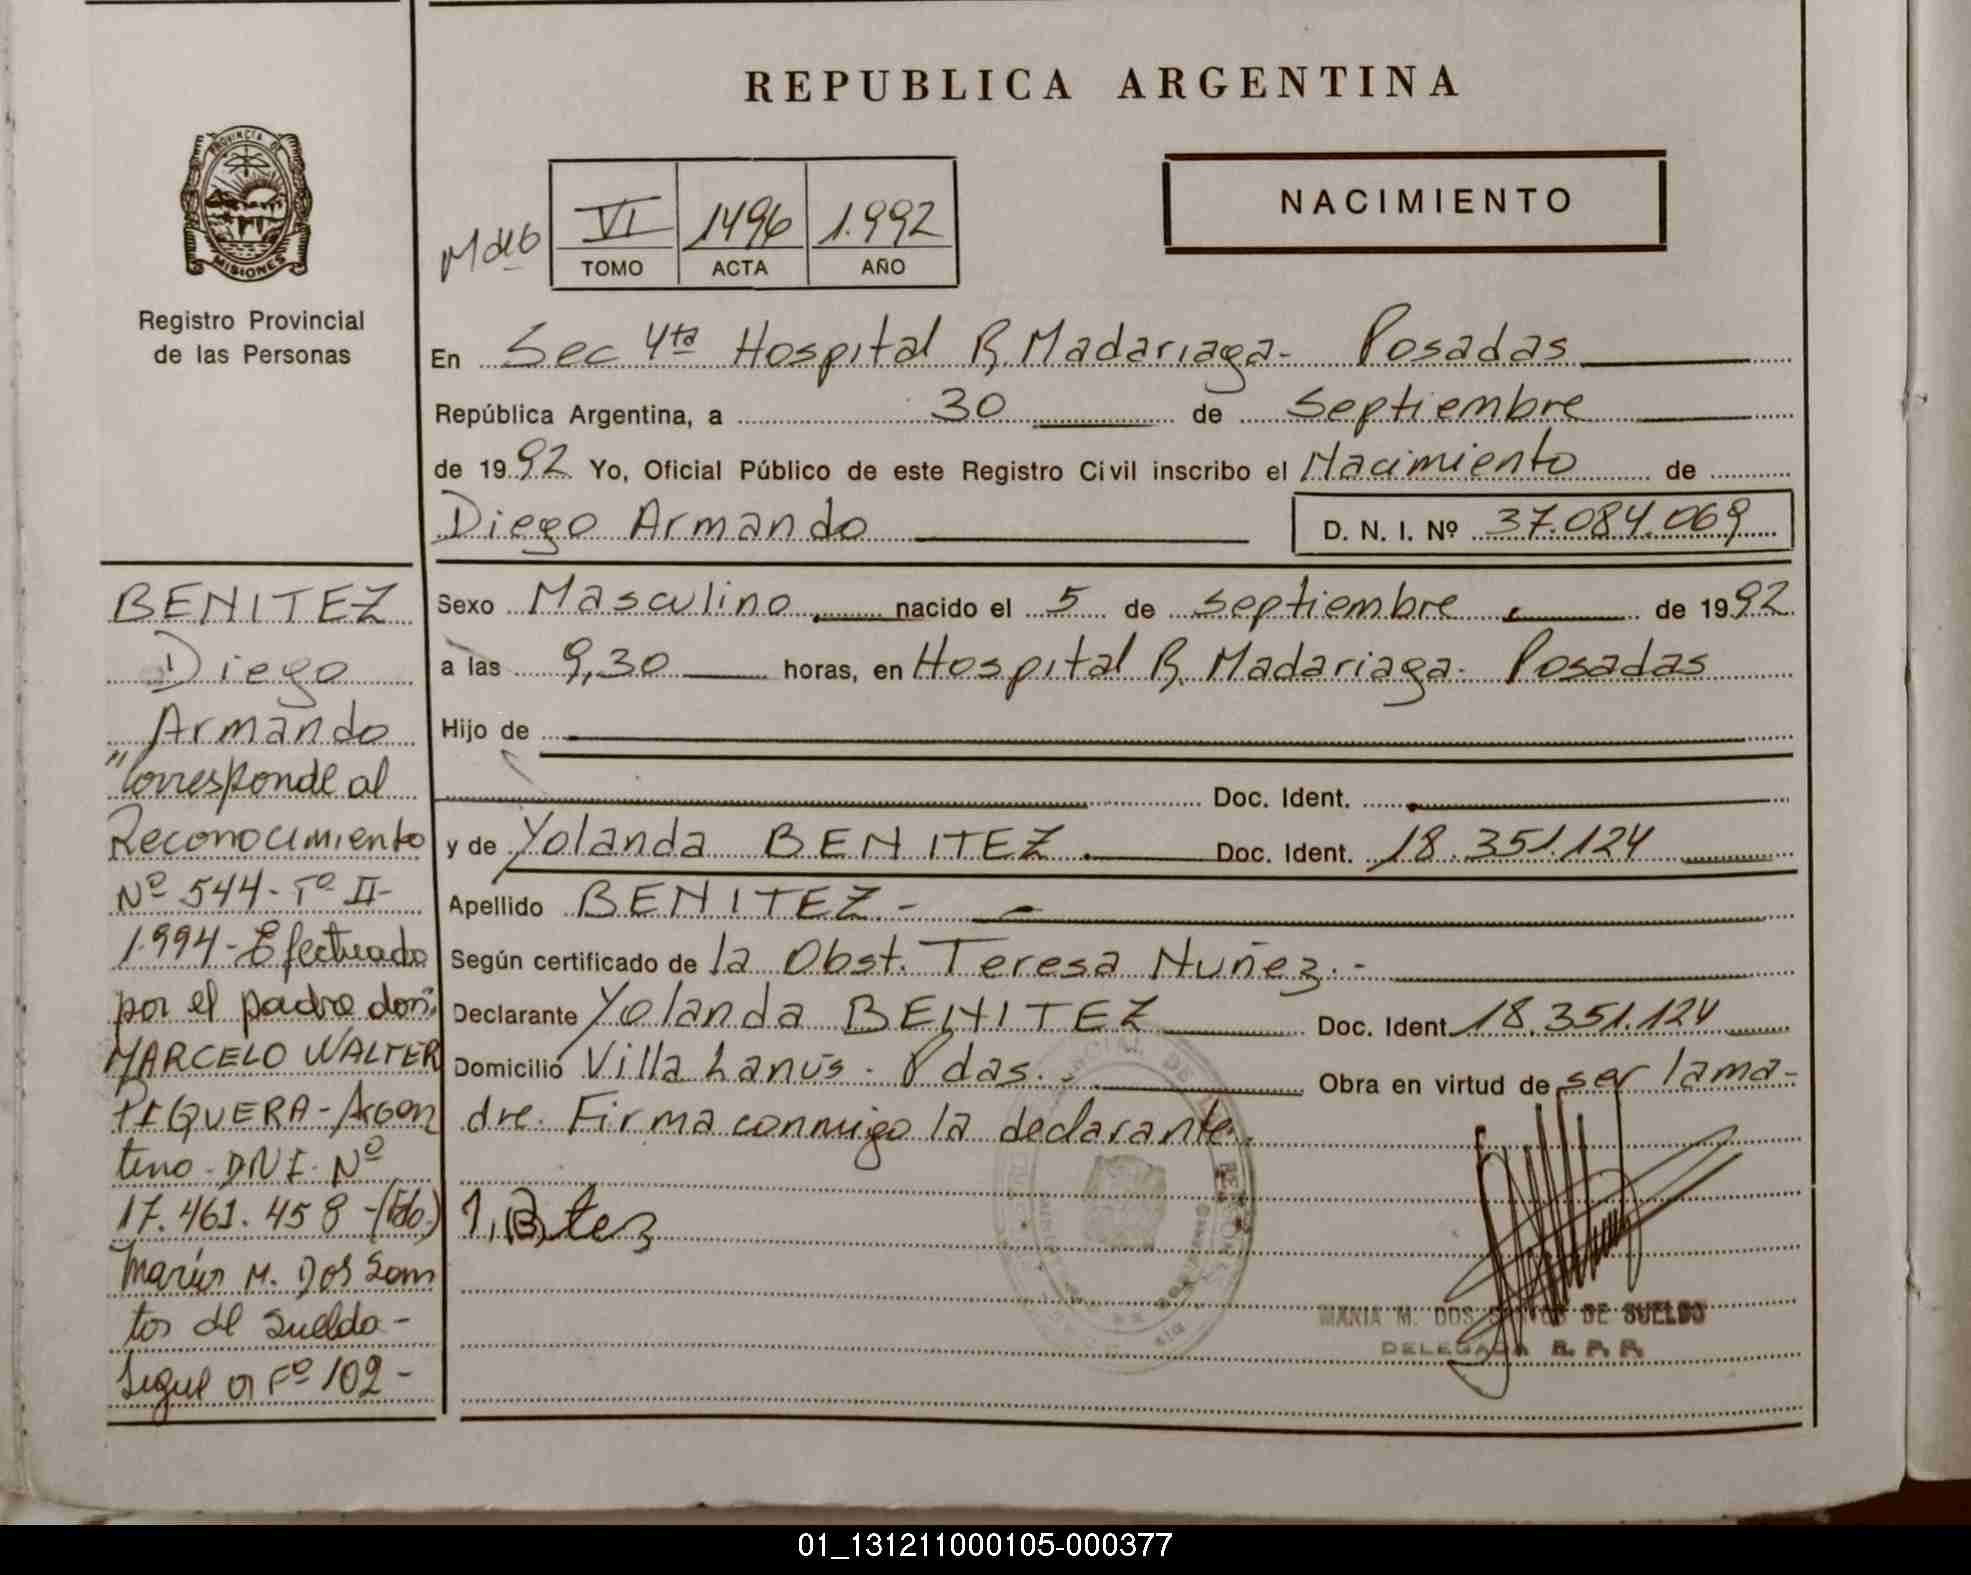 REPUBLICA ARGENTINA
PROVINCIA DE
MISIONES
Registro Provincial
de las Personas
VI 1496 1.992
TOMO ACTA AÑO
NACIMIENTO
En Sec 4ta Hospital R. Madariaga- Posadas
República Argentina, a 30 de Septiembre
de 1992 Yo, Oficial Público de este Registro Civil inscribo el Nacimiento de
Diego Armando D. N. I. Nº 37.084.069
Sexo Masculino nacido el 5 de septiembre de 1992
a las 9,30 horas, en Hospital R. Madariaga- Posadas
Hijo de
Doc. Ident.
y de Yolanda BENITEZ Doc. Ident. 18.351.124
Apellido BENITEZ.-
Según certificado de la Obst. Teresa Nuñez.-
Declarante Yolanda BENITEZ Doc. Ident. 18.351.124
Domicilio Villa Lanús. Pdas.- Obra en virtud de ser la ma-
dre. Firma conmigo la declarante.
MARIA M. DOS SANTOS DE SUELDO
DELEGADA R. P. P.
BENITEZ
Diego
Armando
"Corresponde al
Reconocimiento
Nº 544- Tº II-
1.994- Efectuado
por el padre don:
MARCELO WALTER
PIQUERA- Argen
tino- DNI- Nº
17.461.458-(Fdo.)
María M. Dos San
tos de Sueldo-
Sigue a Fº 102-
01_131211000105-000377